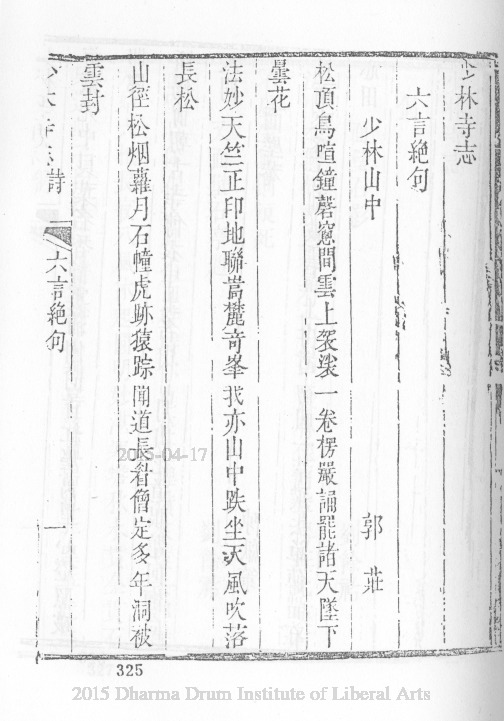 少林寺志
六言絶句
少林山中 郭莊
松頂鳥喧鐘磬窻間雲上袈裟一卷楞嚴誦罷諸天墜下
曇花
法妙天竺正印地聯嵩麓竒峯我亦山中趺坐天風吹落
長松
山徑松烟蘿月石幢虎跡猿踪聞道長眷僧定多年洞被
雲封
少林寺志詩 六言絶句 一
325
2005-04-17
2015 Dharma Drum Institute of Liberal Arts